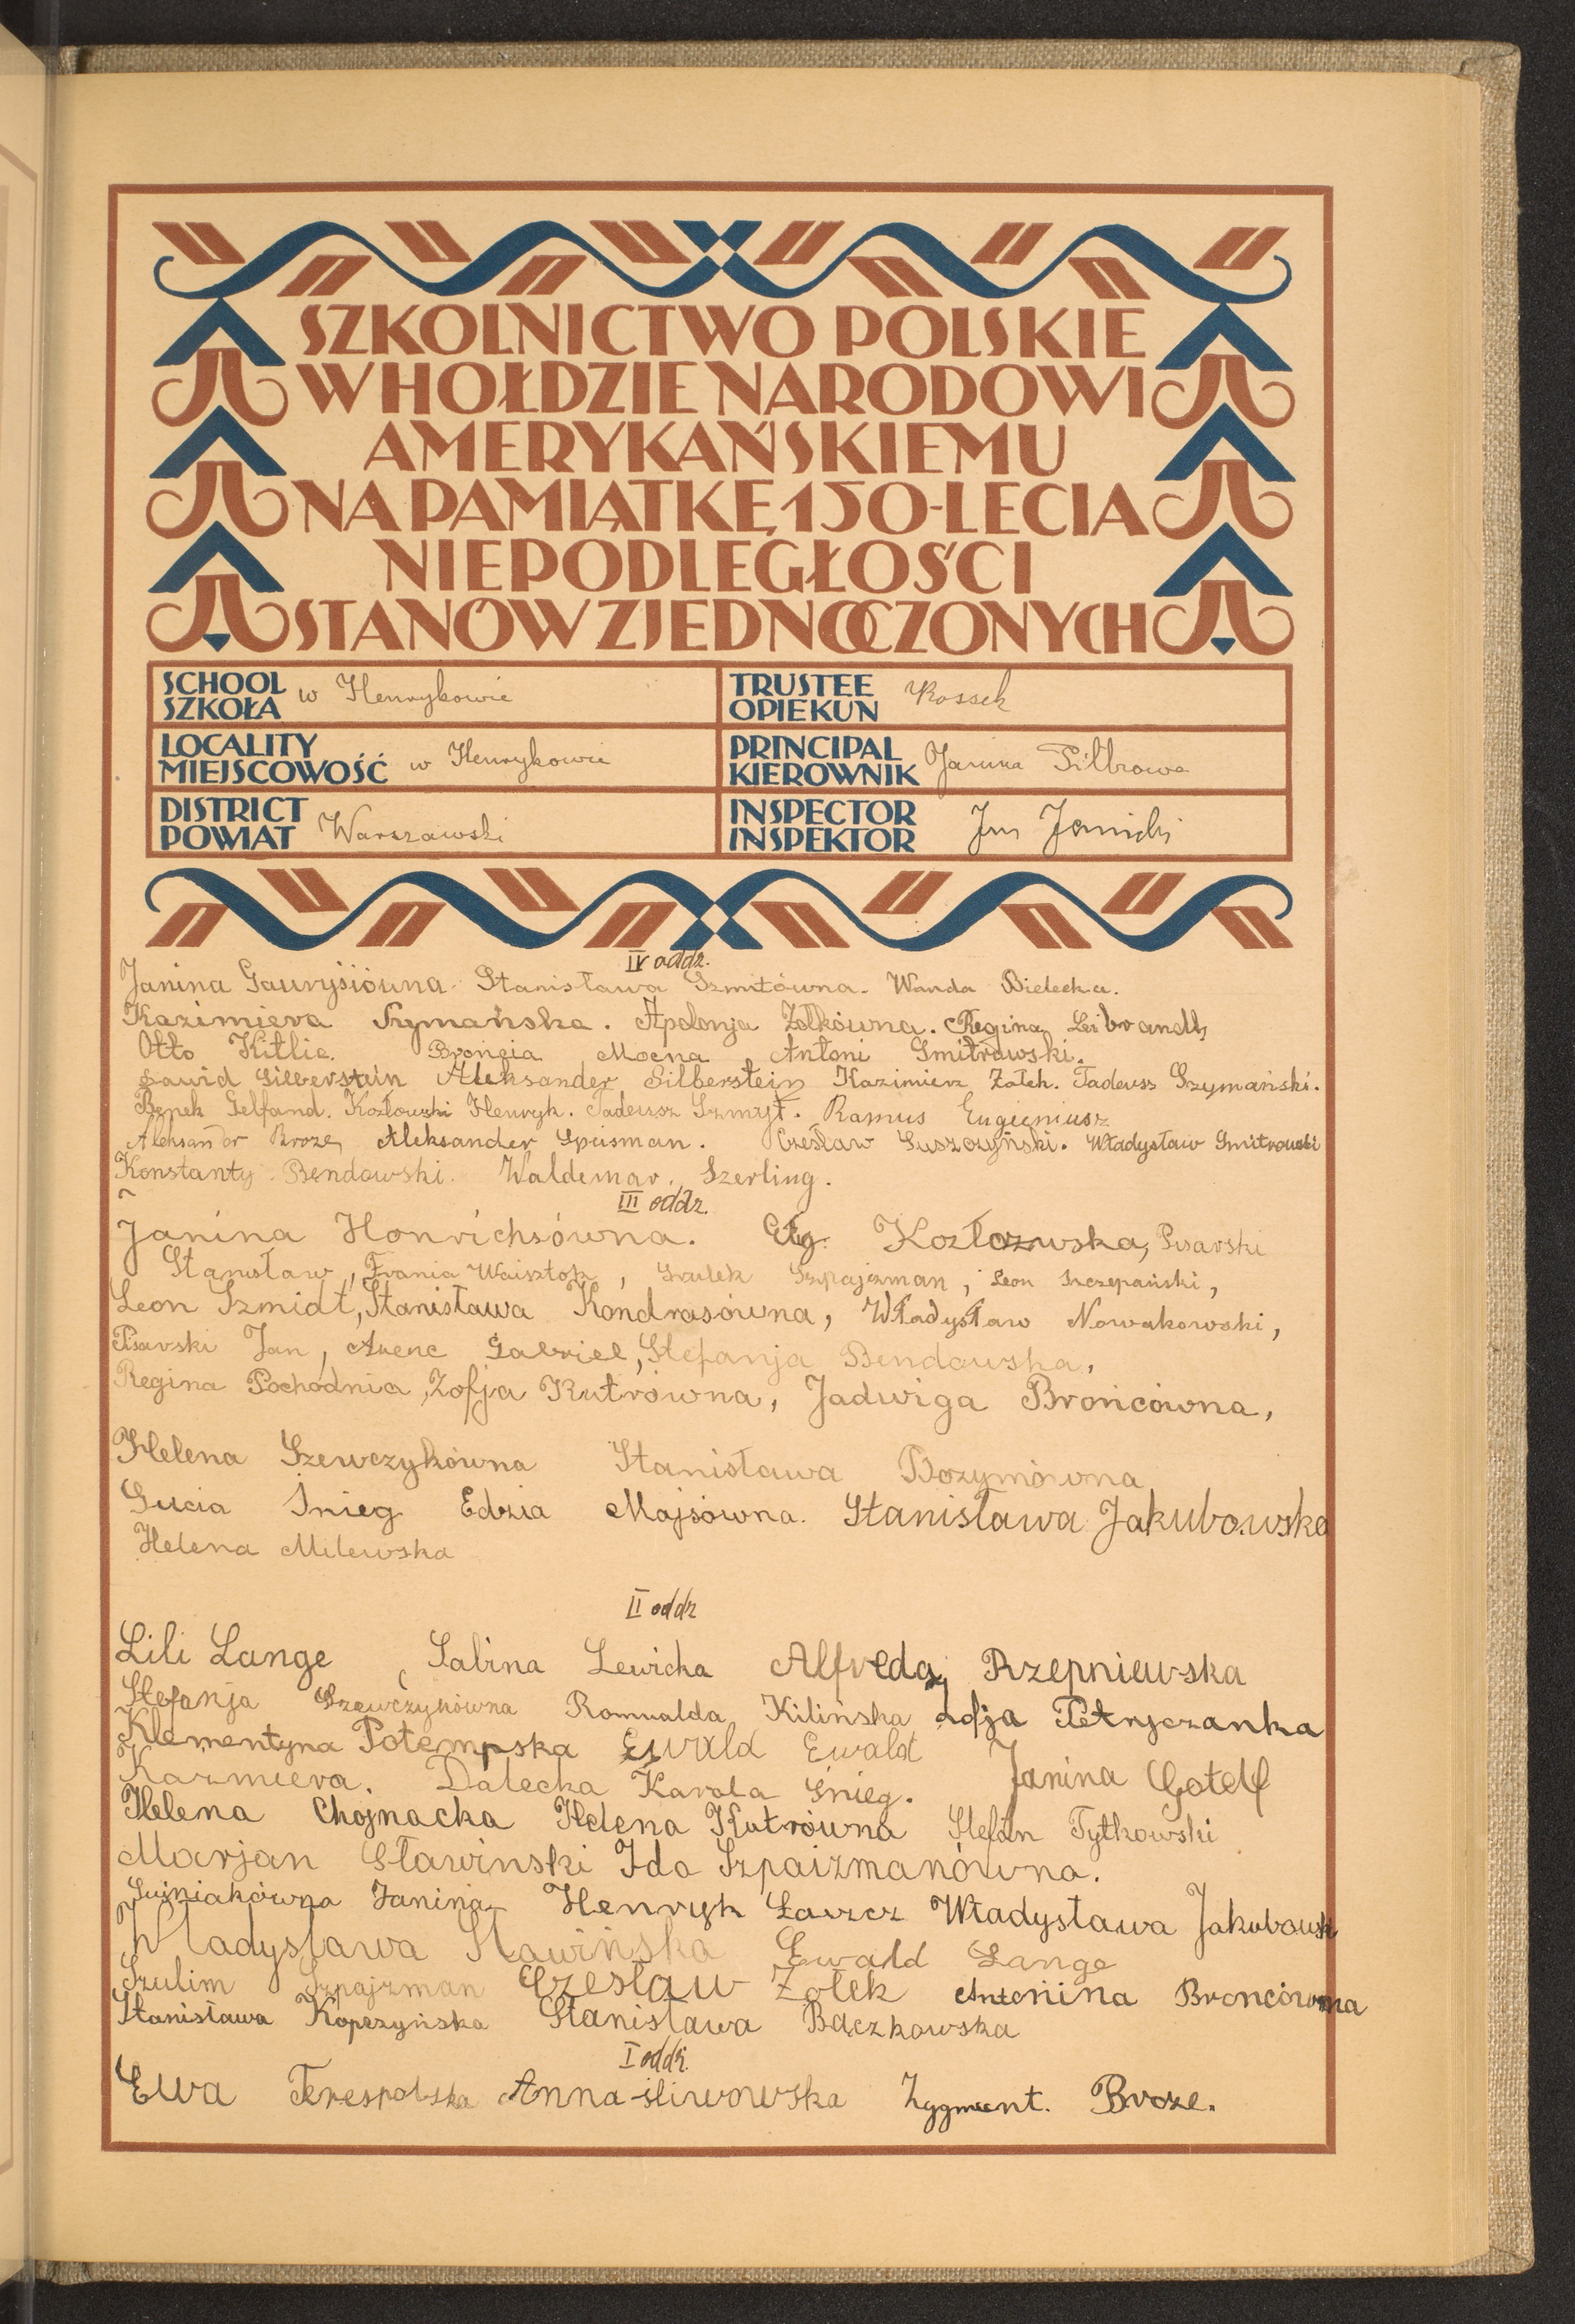 SZKOLNICTWO POLSKIE
W HOŁDZIE NARODOWI
AMERYKAŃSKIEMU
NA PAMIĄTKĘ 150-LECIA
NIEPODLEGŁOŚCI
STANÓW ZJEDNOCZONYCH
SCHOOL SZKOŁA w Henrykowie
TRUSTEE OPIEKUN Rossek
LOCALITY MIEJSCOWOŚĆ w Henrykowie
PRINCIPAL KIEROWNIK Janina
DISTRICT POWIAT Warszawski
INSPECTOR INSPEKTOR Janicki
IV oddz.
Janina Stanisława Szmitówna. Wanda Bielecka.
Kazimiera Szymańska. Apolonja Żołkówna. Regina Leibrandt
Otto Kitlic. Broncia Mocna Antoni Smitrowski.
Dawid Silberstein Aleksander Silberstein Kazimierz Żołek. Tadeusz Szymański.
Benek Gelfand. Kozłowski Henryk. Tadeusz Szmyt. Ramus Eugieniusz
Aleksander Broze Aleksander Spisman. Czesław Suszczyński. Władysław Smitrowski
Konstanty Bendowski. Waldemar. Szerling.
III oddz.
Janina Honrichsówna. Pisarski
Stanisław, Frania Waisztok, Szulek Szpajzman, Leon Szczepański,
Leon Szmidt, Stanisława Kondrasówna, Władysław Nowakowski,
Pisarski Jan, Arenc Gabriel, Stefanja Bendowska,
Regina Pochodnia, Zofja Kutrówna, Jadwiga Brońcówna,
Helena Szewczykówna Stanisława Bozymówna
Gucia Śnieg Edzia Majsówna. Stanisława Jakubowska
Helena Milewska
II oddz
Lili Lange Sabina Lewicka Alfreda Rzepniewska
Stefanja Szewczykówna Romualda Kilińska Zofja Petryczanka
Klementyna Potempska Ewald Ewald
Kazmiera. Dalecka Karola Śnieg. Janina Gotelf
Helena Chojnacka Helena Kutrówna Stefan Tytkowski
Marjan Sławinski Ida Szpaizmanówna.
Janina Henryk Łaszcz Władysława Jakubowsk
Władysława Sławińska Ewald Lange
Szulim Szpajzman Czesław Żołek Antonina Broncówna
Stanisława Kopczyńska Stanisława Bączkowska
I oddz.
Ewa Terespolska Anna śliwowska Zygmunt. Broze.